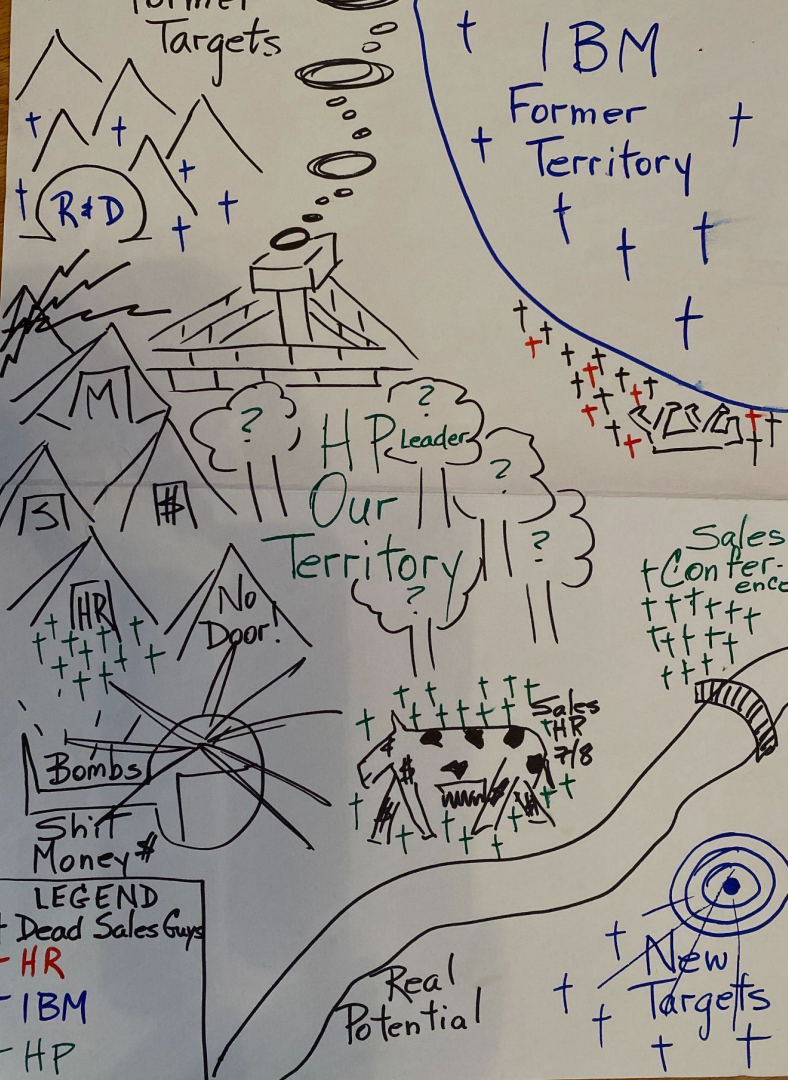 Former
Targets
IBM
Former
Territory
R&D
M
?
?
HP
Leader
?
Our
S
$
?
Territory
?
HR
No
Door!
Sales
Confer-
ence
Sales
HR
7/8
$
$
Bombs
Shit
Money $
LEGEND
Dead Sales Guys
HR
IBM
HP
Real
Potential
New
Targets